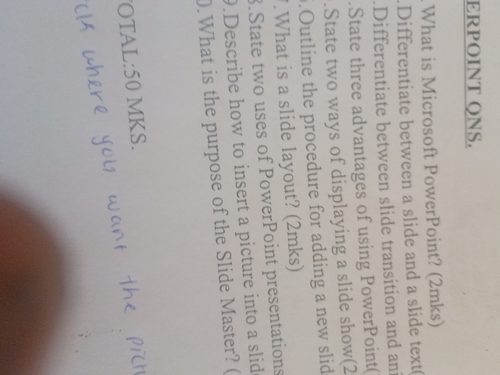 ERPOINT QNS.
.What is Microsoft PowerPoint? (2mks)
.Differentiate between a slide and a slide text(
.Differentiate between slide transition and ani
.State three advantages of using PowerPoint(
.State two ways of displaying a slide show(2
.Outline the procedure for adding a new slid
7.What is a slide layout? (2mks)
8.State two uses of PowerPoint presentations
9.Describe how to insert a picture into a slid
0.What is the purpose of the Slide Master? (
OTAL:50 MKS.
where you want the pictu